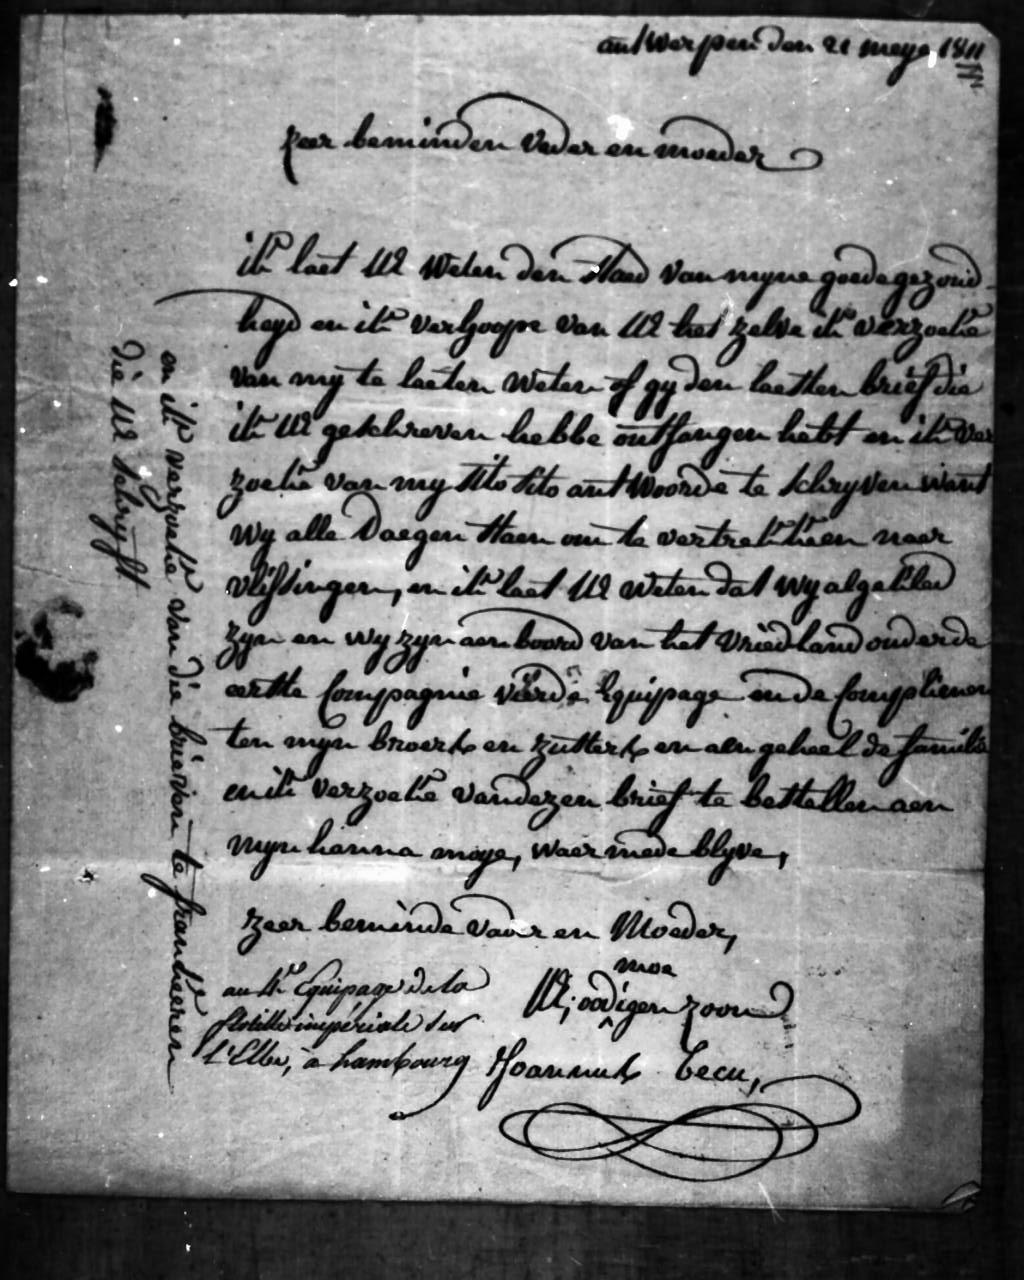 antwerpen den 21 meye 1811
zeer beminden Vader en moeder
ik laet UE Weten den staed van myne goede gezond
heyd en ik verhoope van UE het zelve ik verzoeke
van my te laeten Weten of gy den laetsten brief die
ik UE geschreven hebbe ontfangen hebt en ik ver
zoeke van my sito sito antWoorde te schryven want
Wy alle Daegen staen om te vertrekken naer
vlissingen, en ik laet UE Weten dat Wy al gekled
zyn en wy zyn aen boord van het Vriedland onder de
eerste Compagnie vierde Equipage en de Complienen
ten myn broers en zusters en aen geheel de familie
en ik verzoeke van dezen brief te bestellen aen
myn hanna moye, waer mede blyve,
zeer beminde vader en Moeder,
moe
UE; oodigen zoon
Joannus Cecu,
au 4e Equipage de la
flotille impériale sur
l'Elbe, à hambourg
en ik verzoeke van die brieven te frankeeren
die UE schryft